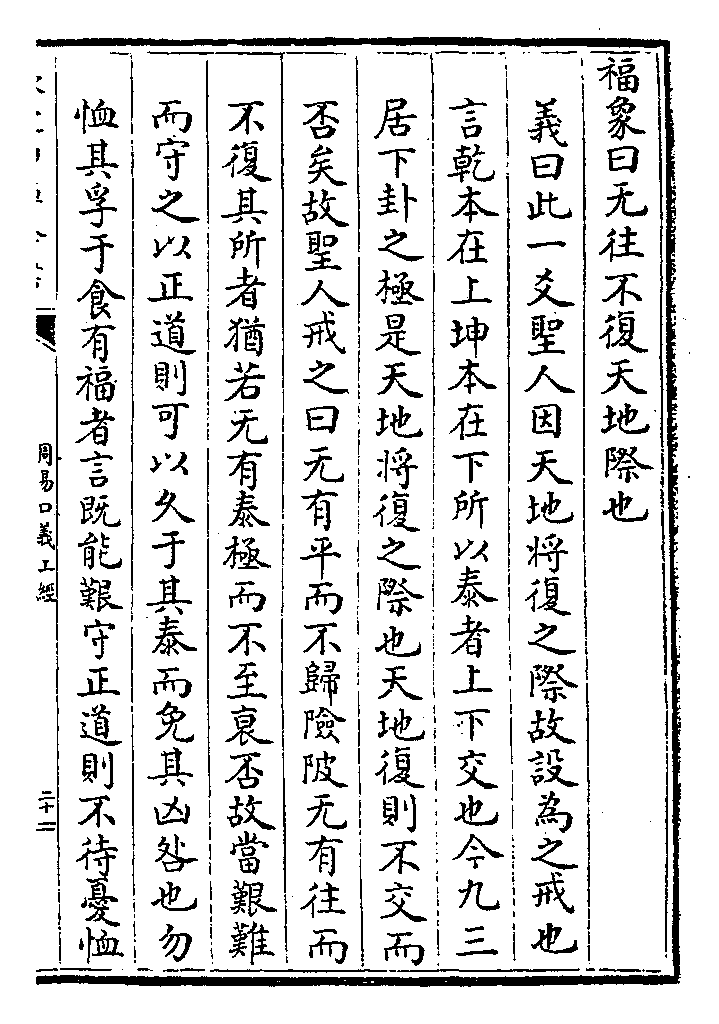 福象曰无往不復天地際也
義曰此一爻聖人因天地將復之際故設為之戒也
言乾本在上坤本在下所以泰者上下交也今九三
居下卦之極是天地將復之際也天地復則不交而
否矣故聖人戒之曰无有平而不歸險陂无有往而
不復其所者猶若无有泰極而不至衰否故當艱難
而守之以正道則可以久于其泰而免其凶咎也勿
恤其孚于食有福者言既能艱守正道則不待憂恤
周易口義上經
二十二